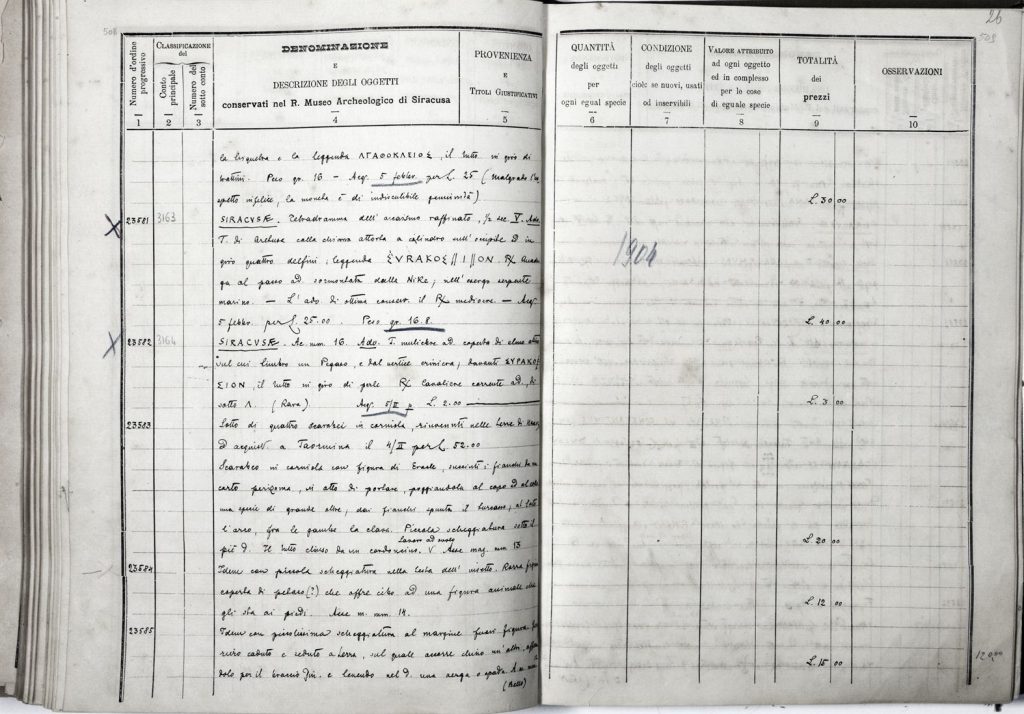 508
Numero d'ordine progressivo
CLASSIFICAZIONE del
Conto principale
Numero del sotto conto
DENOMINAZIONE
E
DESCRIZIONE DEGLI OGGETTI
conservati nel R. Museo Archeologico di Siracusa
PROVENIENZA
E
TITOLI GIUSTIFICATIVI
1 2 3 4 5
la triquetra e la leggenda ΑΓΑΘΟΚΛΕΙΟΣ, il tutto in giro di
trattini. Peso gr. 16 – Acq. 5 febbr. per L. 25 (Malgrado l'as-
petto infelice, la moneta è di indiscutibile genuinità)
X 23581 3163 SIRACUSÆ. Tetradramma dell' arcaismo raffinato, ½ sec. V. Ado.
T. di Aretusa colla chioma attorta a cilindro sull' occipite D in
giro quattro delfini; leggenda ΣVRAKOΣ || I || ON. R/ Quadri
ga al passo ad. sormontata dalla Nike; nell' esergo serpente
marino. — L' ado di ottima conserv. il R/ mediocre. — Acq.
5 febbr. per L. 25.00. Peso gr. 16.8.
X 23582 3164 SIRACUSÆ. Ae. mm. 16. Ado. T. muliebre ad. coperta di elmo
sul cui lembro un Pegaso, e dal vertice criniera; davanti ΣΥΡΑΚΟ
ΣΙΟΝ, il tutto in giro di perle R/ Cavaliere corrente ad., di
sotto Λ. (Rara) Acq. 5/II p L. 2.00
23583 Lotto di quattro scarabei in corniola, rinvenuti nelle terre di
D acquist. a Taormina il 4/II per L. 52.00
Scarabeo in corniola con figura di Eracle, succinti i fianchi da un
corto perizoma, in atto di portare, poggiandola al capo D al
una specie di grande otre, dai fianchi spunta il turcasso,
l'arco, fra le gambe la clava. Piccola scheggiatura sotto il
piè D. Il tutto chiuso da un cordoncino. Lavoro ad V Asse mag. mm 13
23584 Idem con piccola scheggiatura nella testa dell' insetto. Rozza figura
coperta di petaso (?) che offre cibo ad una figura animale che
gli sta ai piedi. Asse m. mm. 14.
23585 Idem con piccolissima scheggiatura al margine fuori figura.
riero caduto e seduto a terra, sul quale accorre chino un altro,
dolo per il braccio e tenendo nel D. una verga o spada.
(Retto)
26
509
QUANTITÀ
degli oggetti
per
ogni egual specie
CONDIZIONE
degli oggetti
cioè: se nuovi, usati
od inservibili
VALORE ATTRIBUITO
ad ogni oggetto
ed in complesso
per le cose
di eguale specie
TOTALITÀ
dei
prezzi
OSSERVAZIONI
6 7 8 9 10
L. 30 00
1904
L. 40 00
L. 3 00
L. 20 00
L. 12 00
L. 15 00
120,00